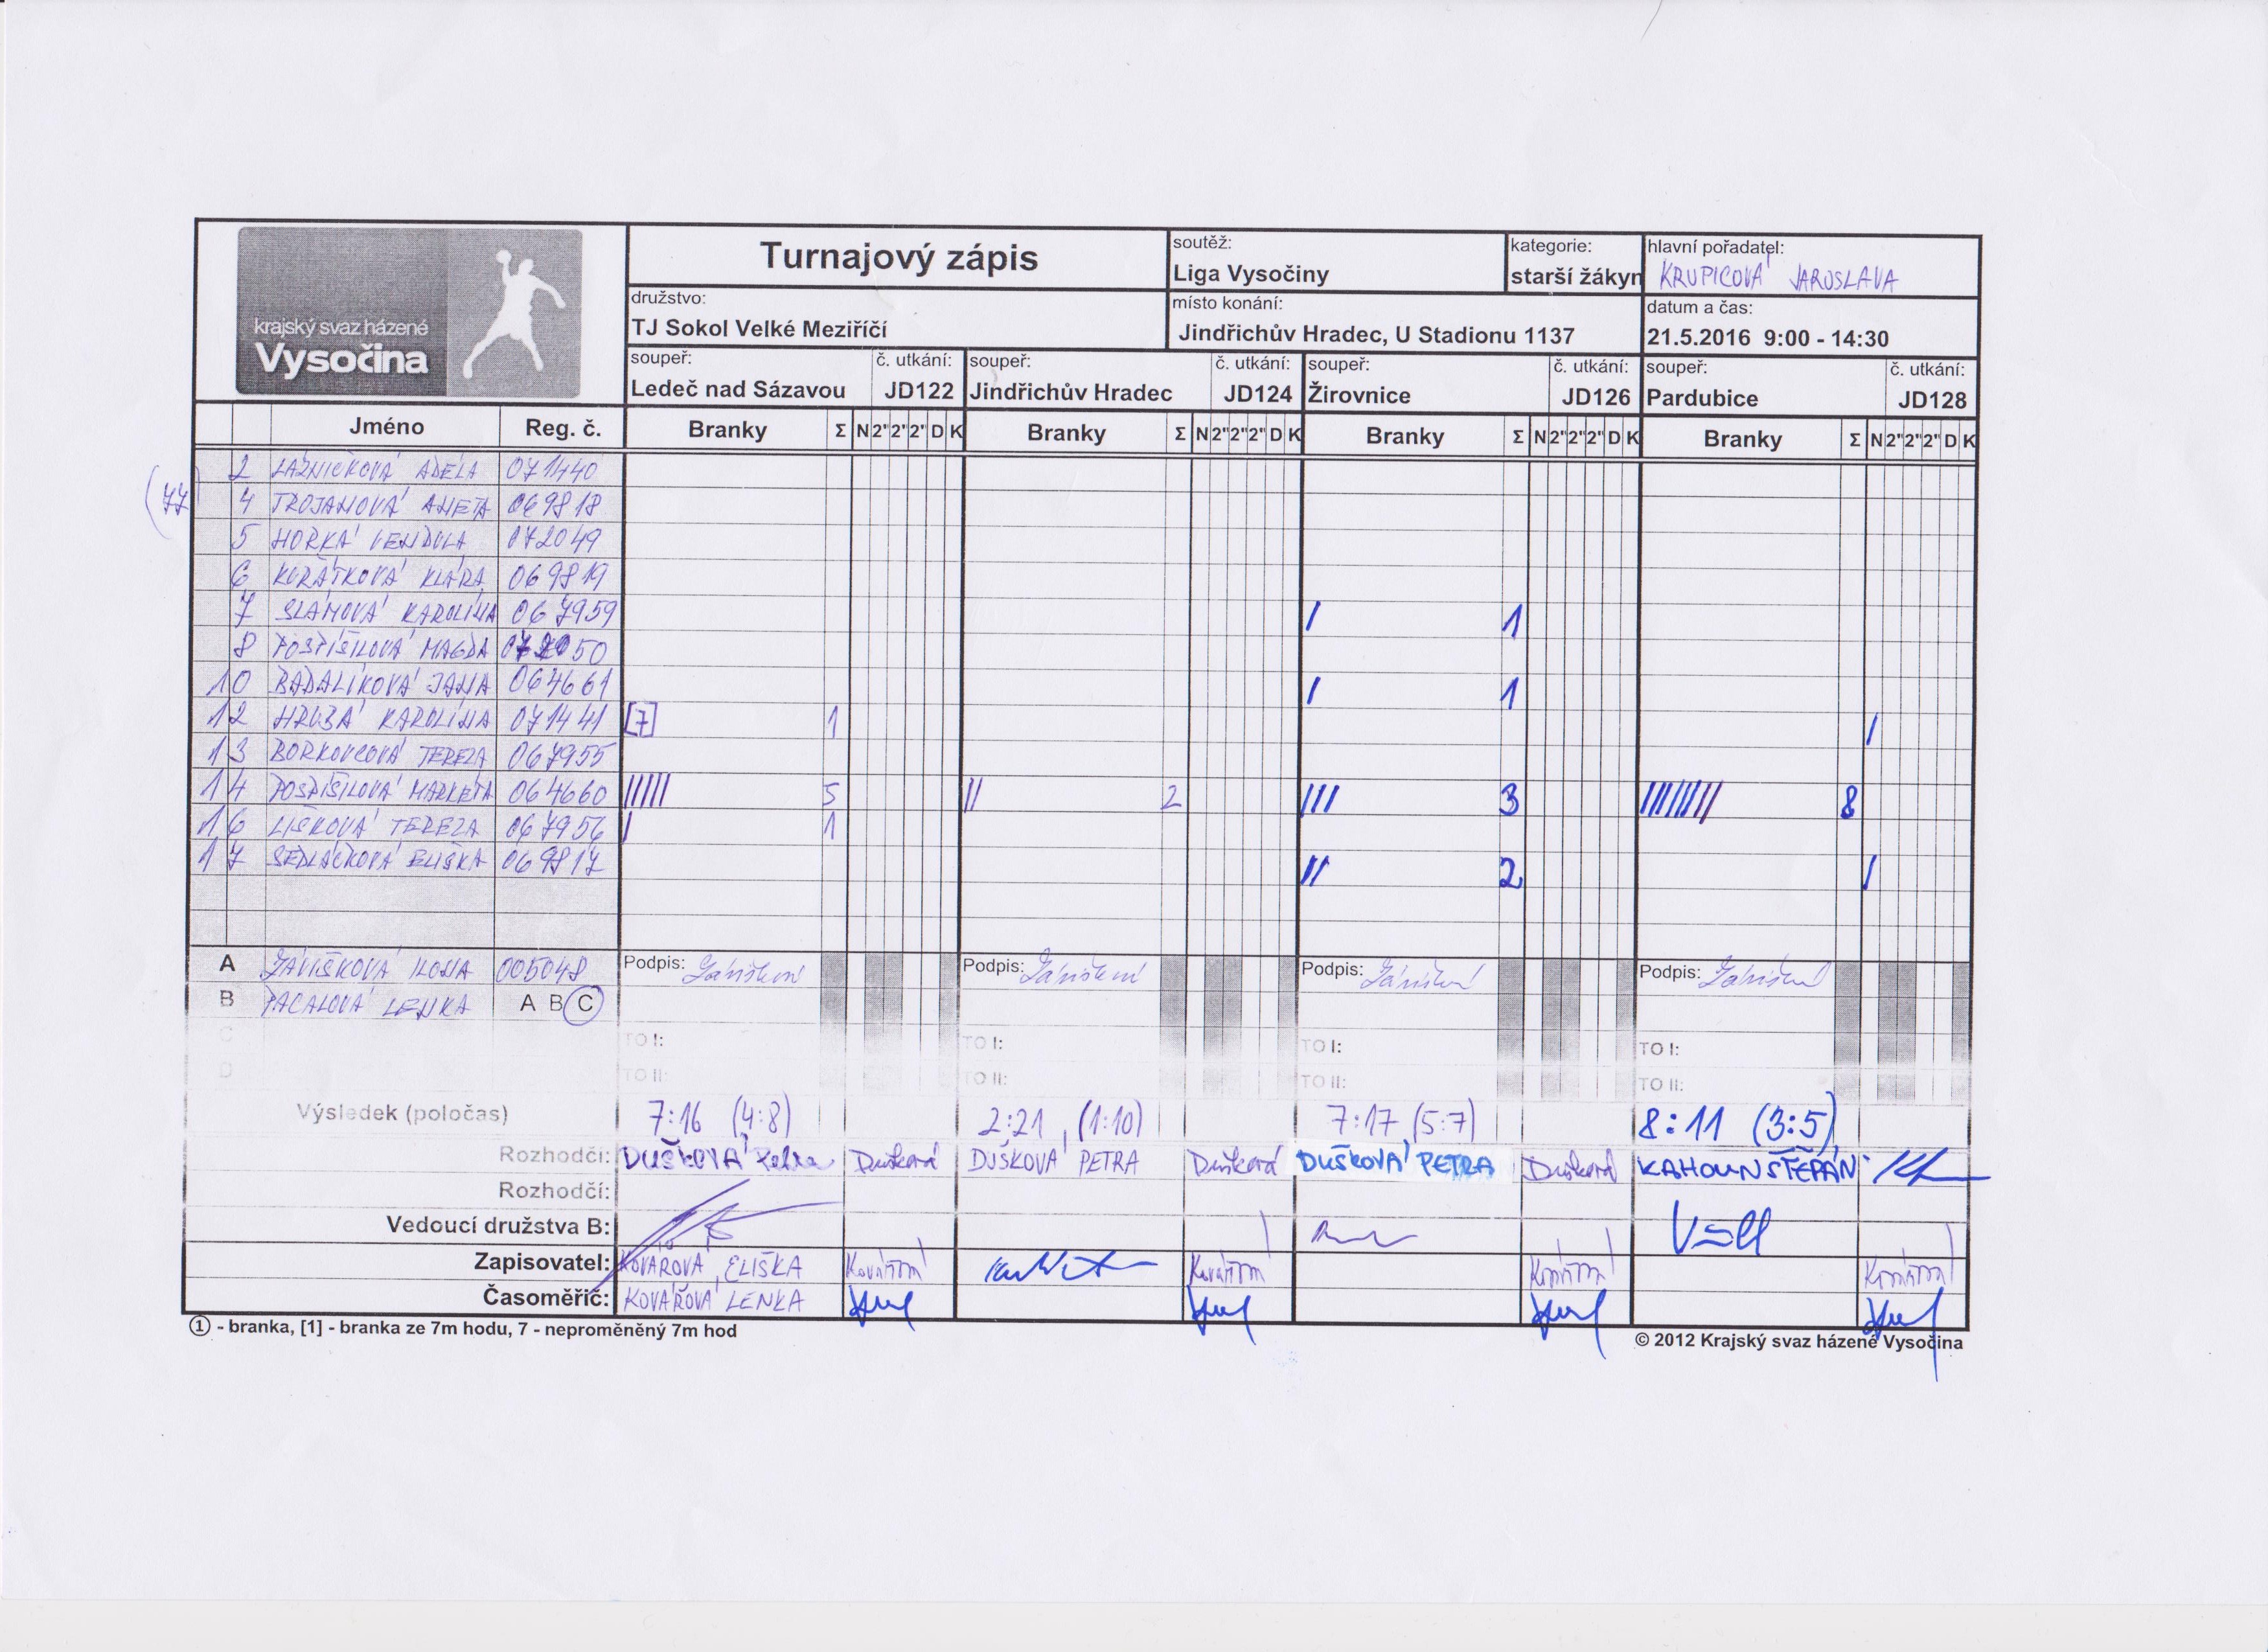 krajský svaz házené
Vysočina
Turnajový zápis
soutěž:
Liga Vysočiny
kategorie:
starší žákyn
hlavní pořadatel:
KRUPICOVÁ JAROSLAVA
družstvo:
TJ Sokol Velké Meziříčí
místo konání:
Jindřichův Hradec, U Stadionu 1137
datum a čas:
21.5.2016 9:00 - 14:30
soupeř: č. utkání: soupeř: č. utkání: soupeř: č. utkání: soupeř: č. utkání:
Ledeč nad Sázavou JD122 Jindřichův Hradec JD124 Žirovnice JD126 Pardubice JD128
Jméno Reg. č. Branky Σ N 2" 2" 2" D K Branky Σ N 2" 2" 2" D K Branky Σ N 2" 2" 2" D K Branky Σ N 2" 2" 2" D K
2 LAŽNIČKOVÁ ADÉLA 071440
(77) 4 TROJANOVÁ ANETA 069818
5 HORKÁ VENDULA 072049
6 KUŘÁTKOVÁ KLÁRA 069819
7 SLÁMOVÁ KAROLÍNA 067959 / 1
8 POSPÍŠILOVÁ MAGDA 072050
10 BADALÍKOVÁ JANA 064661 / 1
12 HRUBÁ KAROLÍNA 071441 [7] 1 /
13 BORKOVCOVÁ TEREZA 067955
14 POSPÍŠILOVÁ MARKÉTA 064660 ///// 5 // 2 /// 3 //////// 8
16 LIŠKOVÁ TEREZA 067956 / 1
17 SEDLÁČKOVÁ ELIŠKA 069817 // 2 /
A ZÁVIŠKOVÁ ILONA 005048 Podpis: Podpis: Podpis: Podpis:
B PACALOVÁ LENKA A B C
C TO I: TO I: TO I: TO I:
D TO II: TO II: TO II: TO II:
Výsledek (poločas) 7:16 (4:8) 2:21 (1:10) 7:17 (5:7) 8:11 (3:5)
Rozhodčí: DUŠKOVÁ Petra Dušková DUŠKOVÁ PETRA Dušková DUŠKOVÁ PETRA Dušková KAHOUN ŠTĚPÁN
Rozhodčí:
Vedoucí družstva B:
Zapisovatel: KOVÁŘOVÁ ELIŠKA
Časoměřič: KOVÁŘOVÁ LENKA
① - branka, [1] - branka ze 7m hodu, 7 - neproměněný 7m hod
© 2012 Krajský svaz házené Vysočina